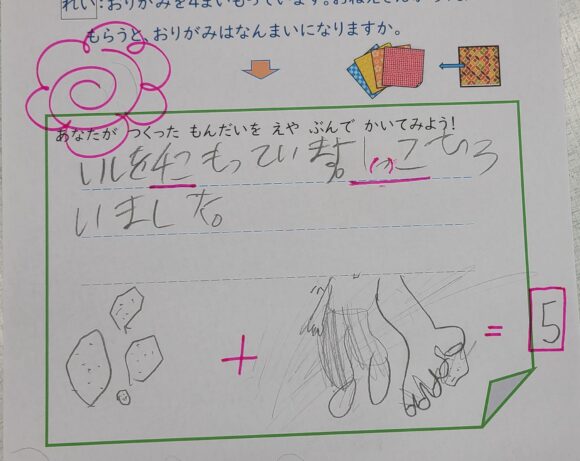 れい:おりがみを4まいもっています。おねえさん
もらうと、おりがみはなんまいになりますか。
あなたが つくった もんだいを えや ぶんで かいてみよう!
いしを4こもっています。いっこもら
いました。
+ = 5